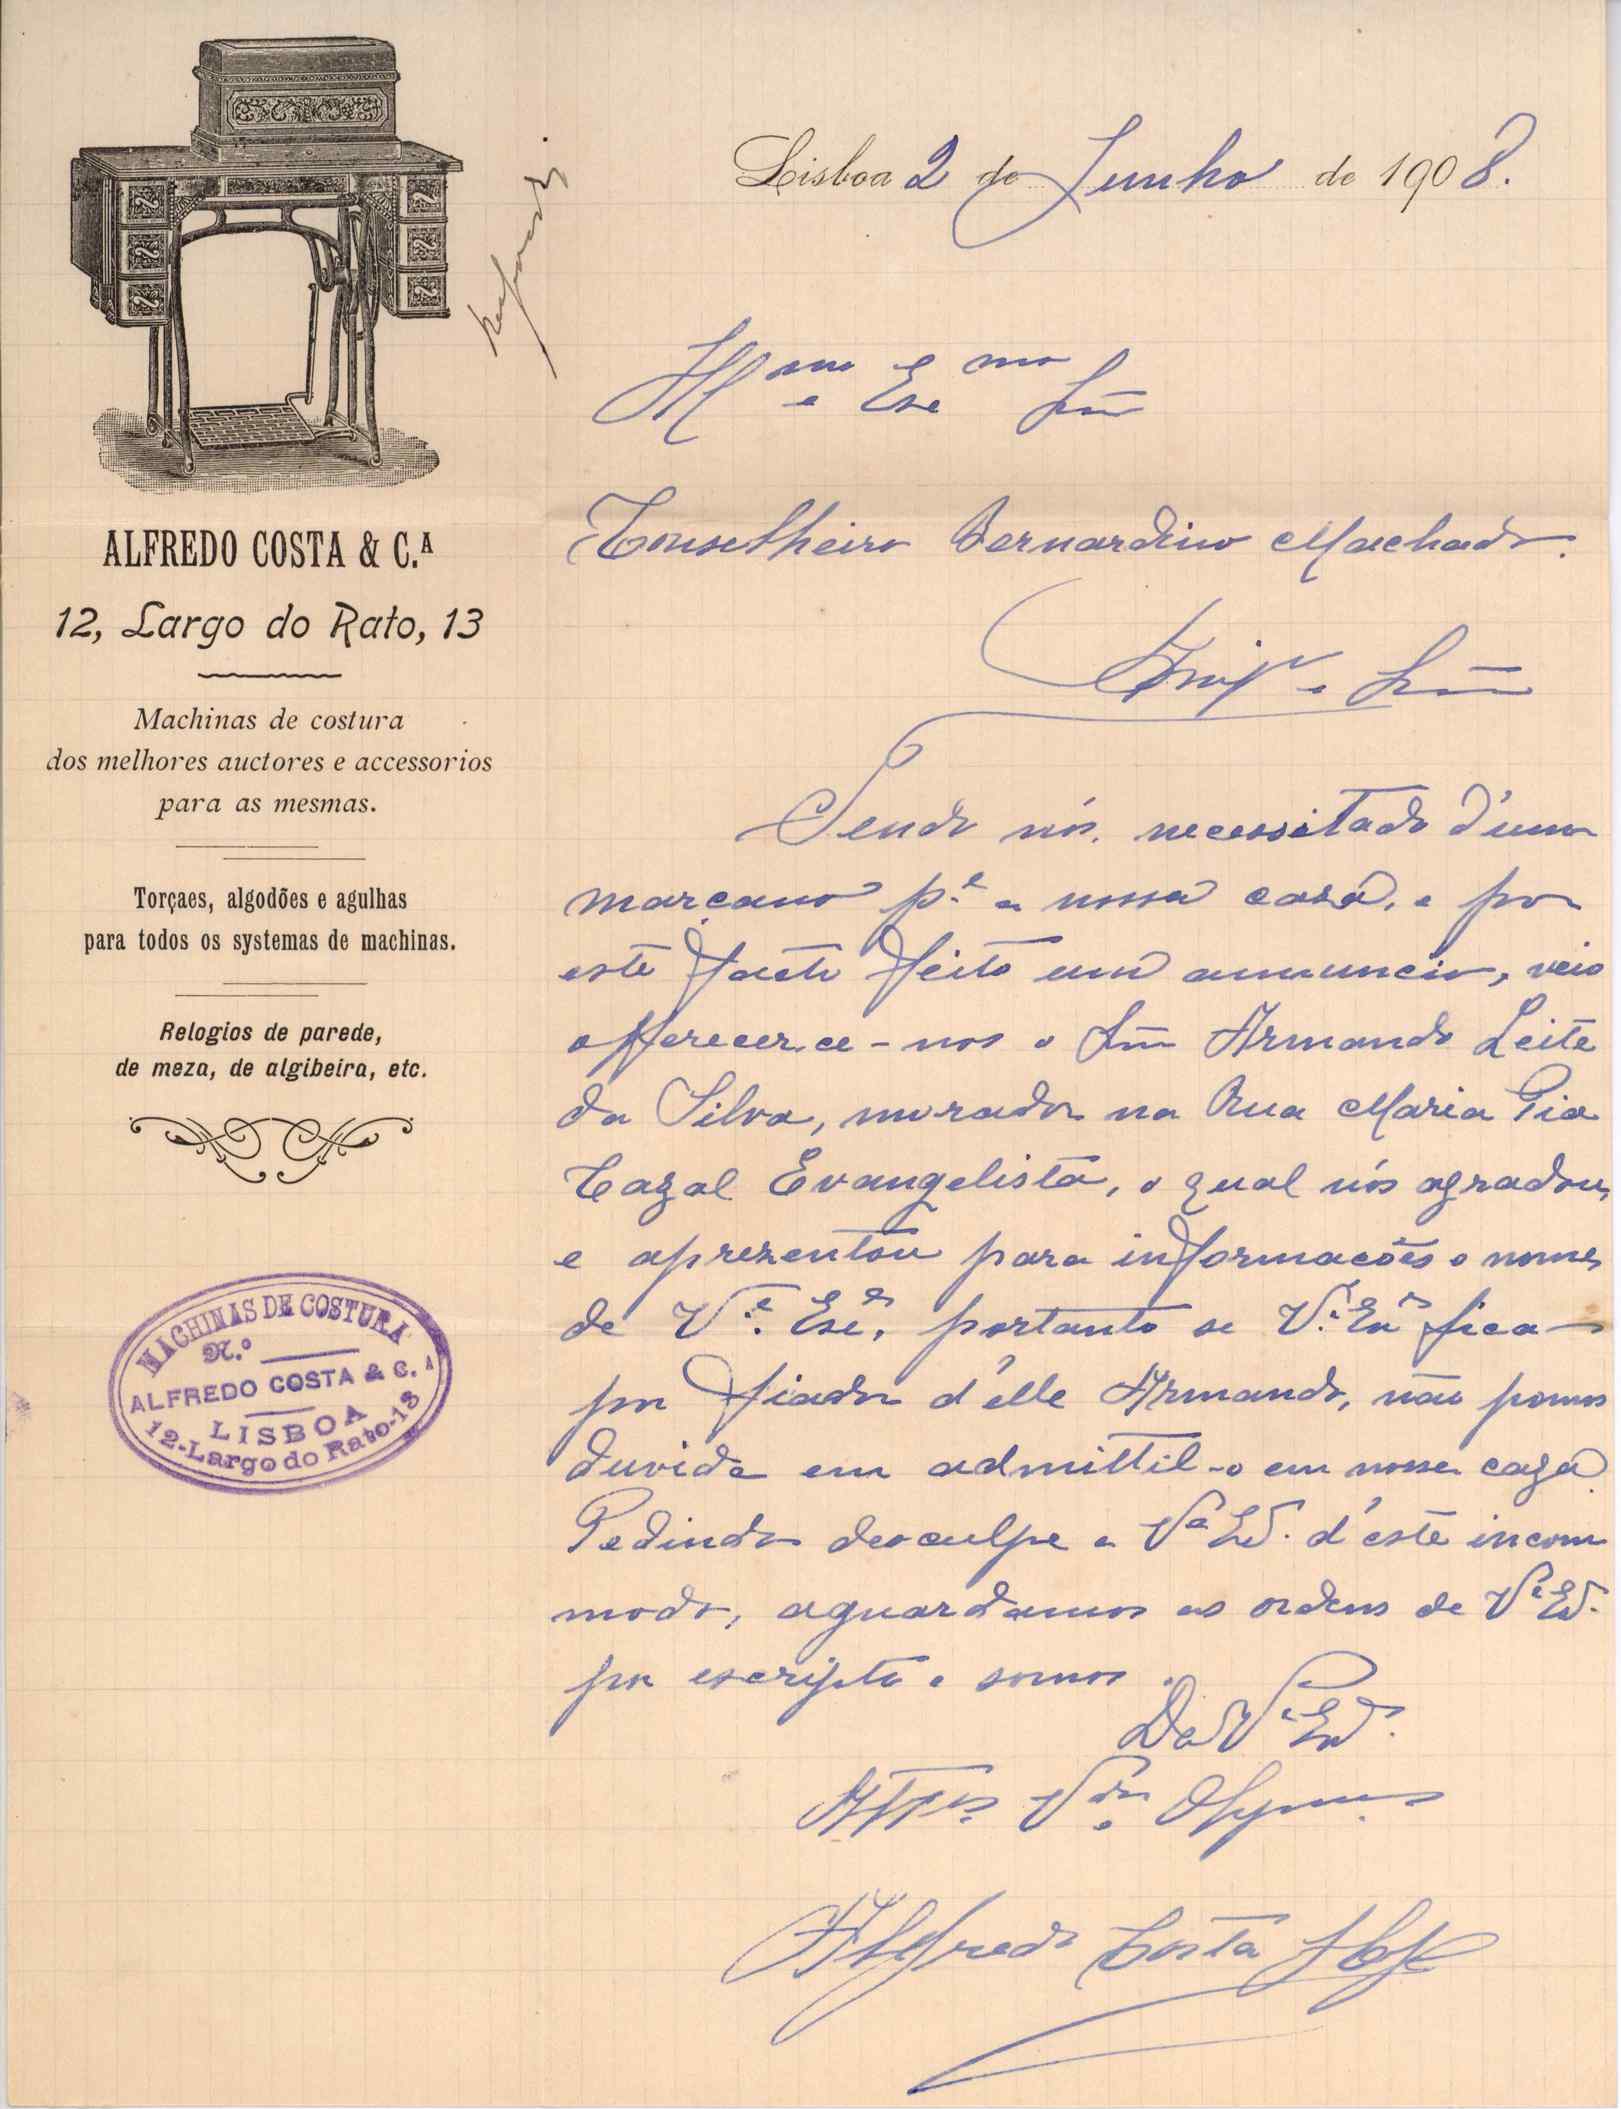 Lisboa 2 de Junho de 1908.
Respondi
Illmo e Exmo Snr
Conselheiro Bernardino Machado.
Amigo e Snr
ALFREDO COSTA & C.A
12, Largo do Rato, 13
Machinas de costura
dos melhores auctores e accessorios
para as mesmas.
Torçaes, algodões e agulhas
para todos os systemas de machinas.
Relogios de parede,
de meza, de algibeira, etc.
MACHINAS DE COSTURA
N.o
ALFREDO COSTA & C.A
LISBOA
12-Largo do Rato-13
Sendo nós, necessitado d'um
marçano p.a a nossa casa, e por
este facto feito um annuncio, veio
offerecer-ce-nos o Snr Armando Leite
da Silva, morador na Rua Maria Pia
Cazal Evangelista, o qual nós agradou,
e aprezentou para informacões o nome,
de V.a Exa, portanto se V.a Exa fica
por fiador d'elle Armando, não pomos
duvida em admittil-o em nossa caza.
Pedindo desculpe a Va Exa. d'este incom
modo, aguardamos as ordens de Va Exa.
por escripto e somos
De Va Exa.
Attos Vdres e Obgmos
Alfredo Costa & Ca